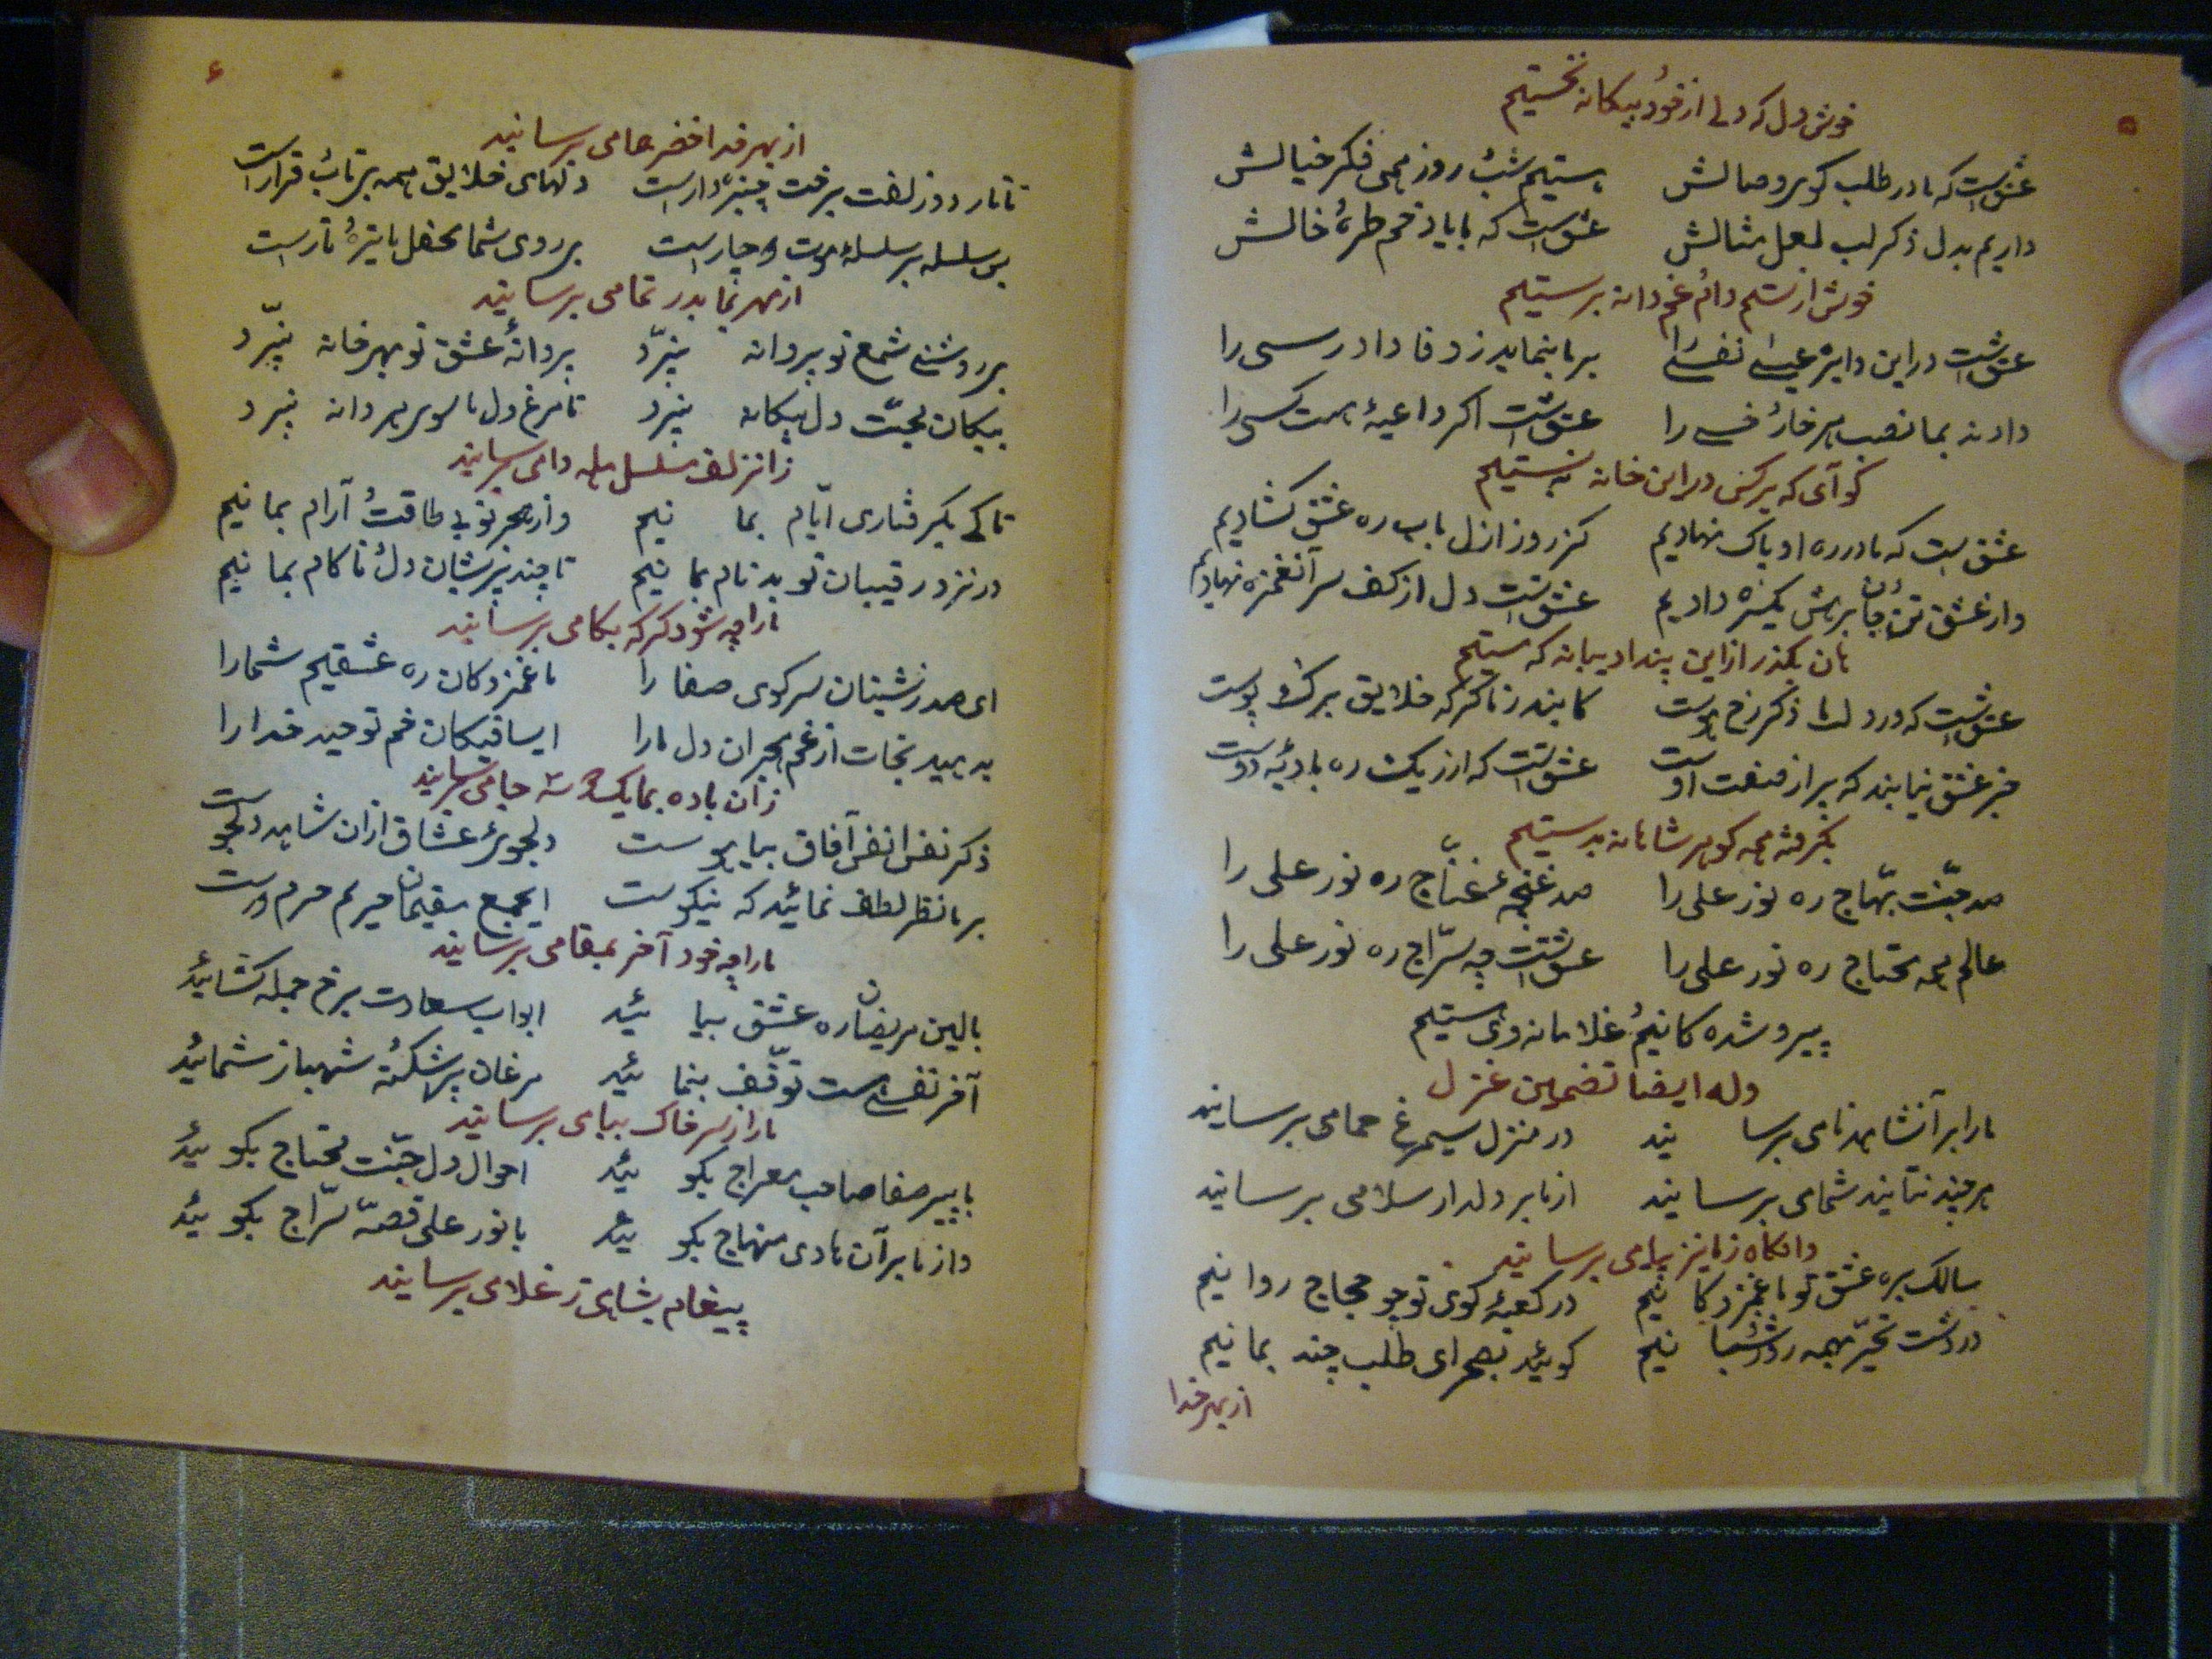 ۵
خوش دل که دل از خود بیکانه نخستیم
عشق است که ما در طلب کوی وصالش هستیم شب و روز همی فکر خیالش
داریم بدل ذکر لب لعل مثالش عشق است که با یاد خم طره خالش
خوش از ستم دام غم دانه برستیم
عشق است در این دایره عیسی نفسی را بر ما بنماید ز وفا دادرسی را
دادند بما نصب هر خار خسی را عشق است اکر داعیهٔ هست کسی را
کو آی که بر کس در این خانه نبستیم
عشق است که ما در ره او پاک نهادیم کز روز ازل باب ره عشق کشادیم
در عشق تن و جان برهش یکسره دادیم عشق است دل از کف سر آنغمزه نهادیم
هان بکذر از این پند ادیبانه که مستیم
عشق است که در دلها ذکر رخ اوست کایند ز ناکرکه خلایق برک و پوست
جز عشق نیابند که پر از صنعت اوست عشق است که ارزیکت ره بادیهٔ دوست
بکرفته همه کوهر شاهانه بدستیم
صد جنّت بهّاج ره نور علی را صد غنچه غنّاج ره نور علی را
عالم همه محتاج ره نور علی را عشق است چه سرّاج ره نور علی را
پیرو شده کانیم غلامانه وی استیم
وله ایضا تضمین غزل
ما را بر آنشاه بنامی برسا نید در منزل سیمرغ حمامی برسانید
هرچند نتایند شمامی برسا نید از ما بر دلدار سلامی برسانید
وانکاه ز ما نیز پیامی برسانید
سالک بره عشق تو ما غمزدکا نیم در کعبهٔ کوی تو چو حجاج روانیم
در دشت تحیر همه روز و شبا نیم کوئید بصحرای طلب چند بمانیم
از بهر خدا
۶
از بهر خدا خضر همامی برسانید
تا تار دو زلفت برخت چنبره دار است دلهای خلایق همه بر تاب و قرار است
بس سلسله بر سلسله مویت چار است بر روی شما محفل ما تیره و تار است
از مهر نما بدر تمامی برسانید
بر روشنی شمع تو پروانه بپرّد پروانهٔ عشق تو بهر خانه بپرّد
پیکان محبّت دل بیکانه بپرد تا مرغ دل ما سوی هر دانه بپرد
زانزلف مسلسل هله دامی برسانید
تا کی بکرفتاری ایّام بما نیم و از هجر تو بی طاقت و آرام بمانیم
در نزد رقیبان تو بدنام بما نیم تا چند پریشان دل و ناکام بما نیم
ما را چه شود کر که بکامی برسانید
ای صدر نشینان سر کوی صفا را ما غمزدکان ره عشقیم شما را
بدهید نجات از غم هجران دل ما را ایساقیکان خم توحید خدا را
زان باده بما یکدوسه جامی برسانید
ذکر نفس انفس آفاق بیاهوست دلجوئی عشاق از آن شاهد دلجوست
بر ما نظر لطف نمائید که نیکوست ایجمع مقیمان حریم حرم دوست
ما را چه خود آخر بمقامی برسانید
بالین مریضان ره عشق بیا ئید ابواب سعادت برخ جمله کشائید
آخر نفسی هست توقّف بنما ئید مرغان پر اشکسته شهباز شمائید
ما را ز سر خاک ببامی برسانید
با پیر صفا صاحب معراج بکو ئید احوال دل جنّت محتاج بکو ئید
و از ما بر آن هادی منهاج بکو ئید با نور علی قصّهٔ سرّاج بکو ئید
پیغام بشاهی ز غلامی برسانید